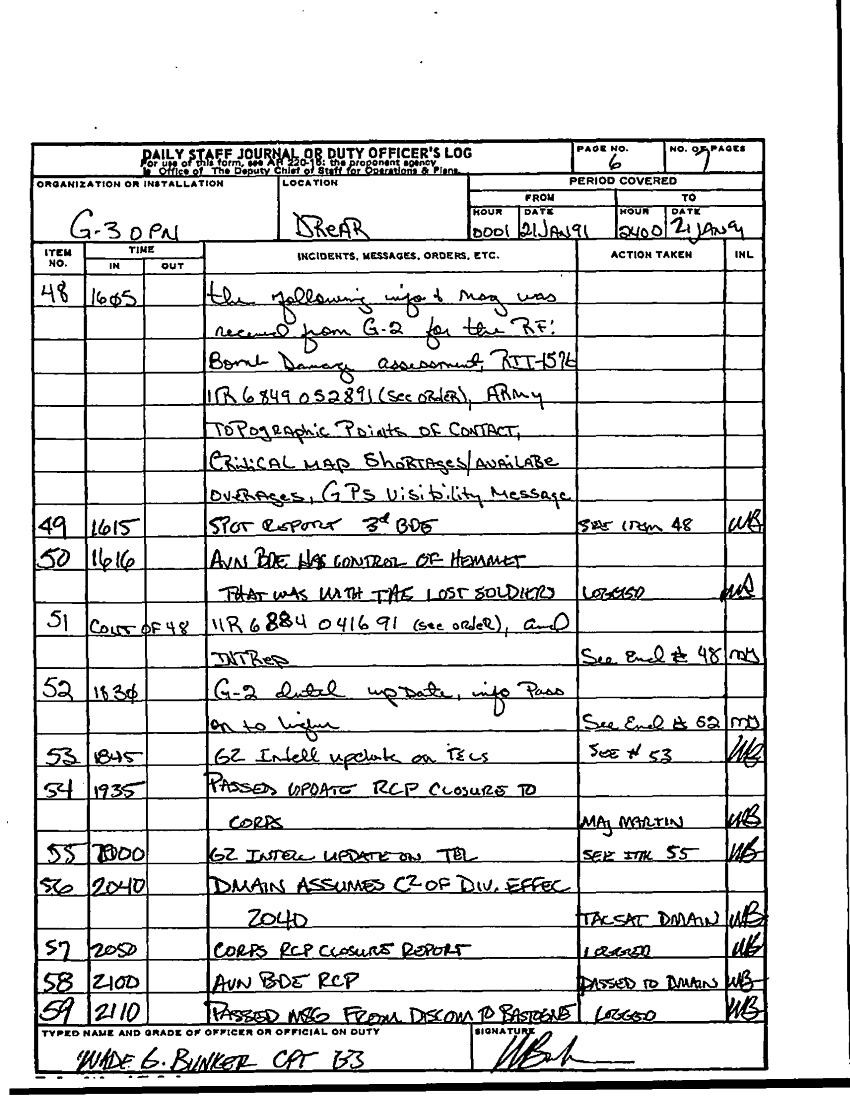 DAILY STAFF JOURNAL OR DUTY OFFICER'S LOG
For use of this form, see AR 220-15; the proponent agency
is Office of The Deputy Chief of Staff for Operations & Plans.
PAGE NO.
6
NO. OF PAGES
7
ORGANIZATION OR INSTALLATION
G-3 OPN
LOCATION
DREAR
PERIOD COVERED
FROM TO
HOUR DATE HOUR DATE
0001 21JAN91 2400 21JAN91
ITEM NO. TIME INCIDENTS, MESSAGES, ORDERS, ETC. ACTION TAKEN INL
IN OUT
48 1605 the following info & msg was
received from G-2 for the RF:
Bomb Damage assessment, RII-1576
IIR 6 849 0528 91 (see order), ARMY
TOPOgraphic Points OF CONTACT,
CRITICAL MAP SHORTAGES/AVAILABE
OVERAGES, GPS Visibility Message
49 1615 SPOT REPORT 3rd BDE SEE ITEM 48 WB
50 1616 AVN BDE HAS CONTROL OF HEMMET
THAT WAS WITH THE LOST SOLDIERS LOGGED WB
51 CONT OF 48 IIR 6 884 0416 91 (see order), and
INTRep See Encl # 48
52 1830 G-2 intel update, info Pass
on to higher See Encl # 52
53 1845 G2 Intell update on TELS SEE # 53 WB
54 1935 PASSED UPDATE RCP CLOSURE TO
CORPS MAJ MARTIN WB
55 2000 G2 INTELL UPDATE ON TEL SEE ITM 55 WB
56 2040 DMAIN ASSUMES C2 OF DIV. EFFEC
2040 TACSAT DMAIN WB
57 2050 CORPS RCP CLOSURE REPORT LOGGED WB
58 2100 AVN BDE RCP PASSED TO DMAIN WB
59 2110 PASSED MSG FROM DISCOM TO BASTOGNE LOGGED WB
TYPED NAME AND GRADE OF OFFICER OR OFFICIAL ON DUTY
WADE G. BUNKER CPT G3
SIGNATURE